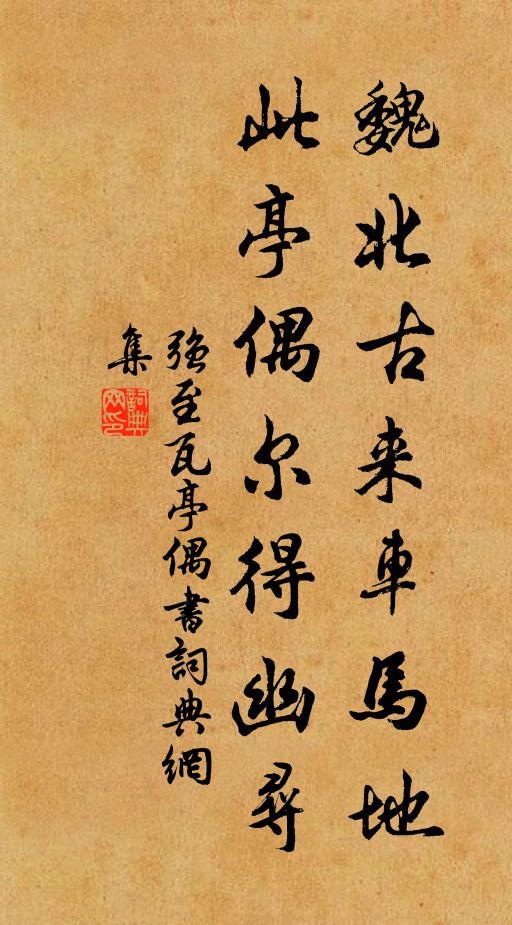 魏北古来車馬地
此亭偶尔得幽尋
强至瓦亭偶書詞典網
集
詞典網印